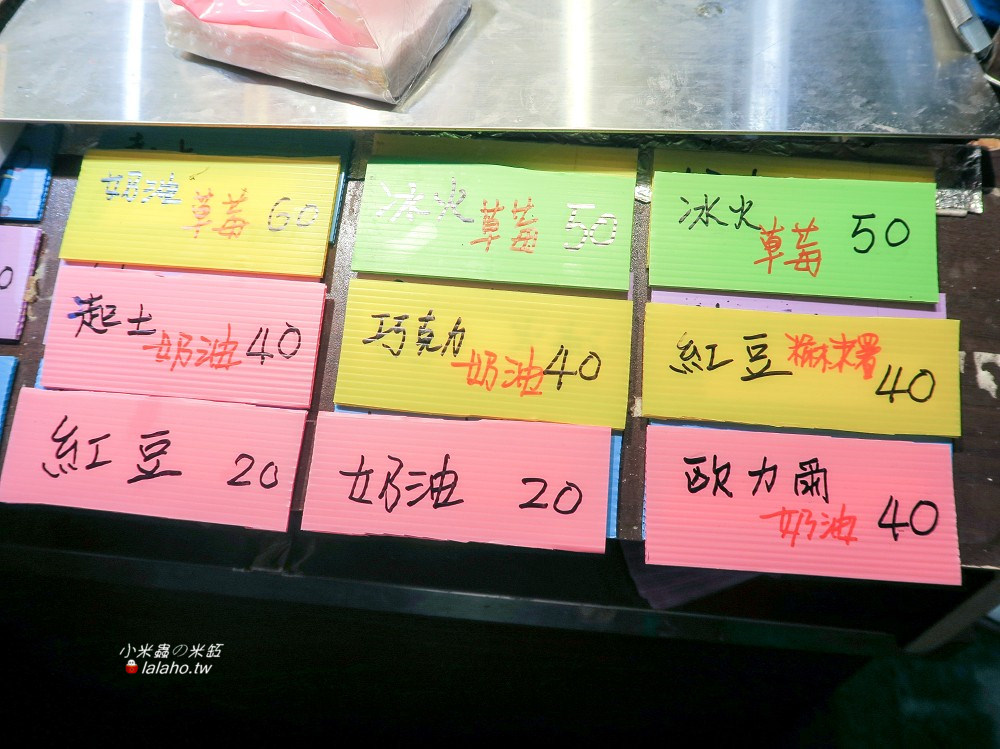 奶油
草莓 60
冰火
草莓 50
冰火
草莓 50
起士
奶油 40
巧克力
奶油 40
紅豆 麻糬
40
紅豆 20
奶油 20
欧力爾
奶油 40
小米蟲の米缸
lalaho.tw